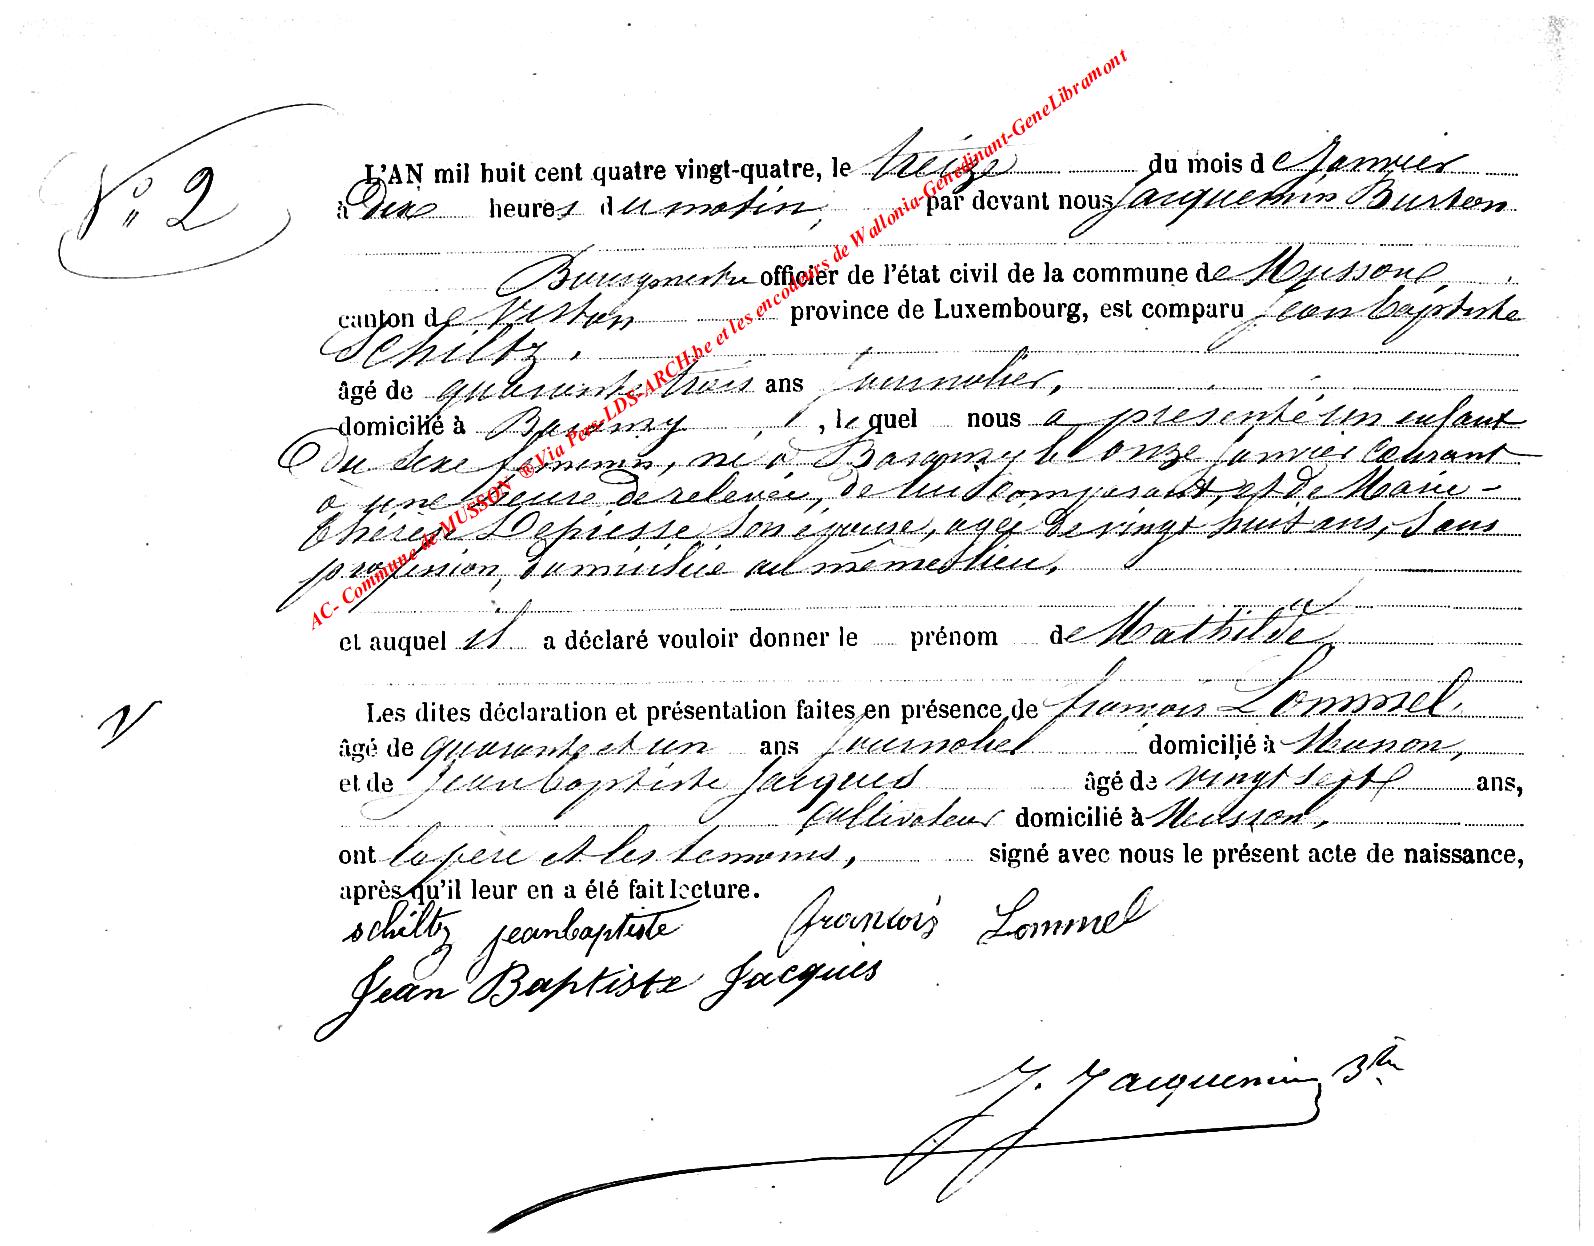 N° 2
L'AN mil huit cent quatre vingt-quatre, le treize du mois de Janvier
à dix heures du matin, par devant nous Jacquemin Burton
Bourgmestre officier de l'état civil de la commune de Musson,
canton de Virton province de Luxembourg, est comparu Jean Baptiste
Schiltz.
âgé de quarante trois ans journalier,
domicilié à Baranzy, lequel nous a présenté un enfant
du sexe féminin, né à Baranzy le onze janvier courant
à une heure de relevée, de lui comparant, et de Marie-
Thérèse Lepiesse son épouse, agée de vingt huit ans, sans
profession, domiciliée au même lieu,
et auquel il a déclaré vouloir donner le prénom de Mathilde
Les dites déclaration et présentation faites en présence de françois Lommel.
âgé de quarante et un ans journalier domicilié à Musson,
et de Jean baptiste Jacques âgé de vingt sept ans,
cultivateur domicilié à Musson,
ont le père et les temoins, signé avec nous le présent acte de naissance,
après qu'il leur en a été fait lecture.
schiltz jeanbaptiste françois Lommel
Jean Baptiste Jacques
J. Jacquemin
AC- Commune de MUSSON ®Via Pers-LDS-ARCH.be et les encodeurs de Wallonia-Genedinant-GeneLibramont